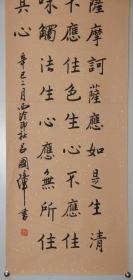 薩摩訶薩應如是生清
不應住色生心不應住
味觸法生心應無所住
其心
辛巳二月西泠印社呂國璋書